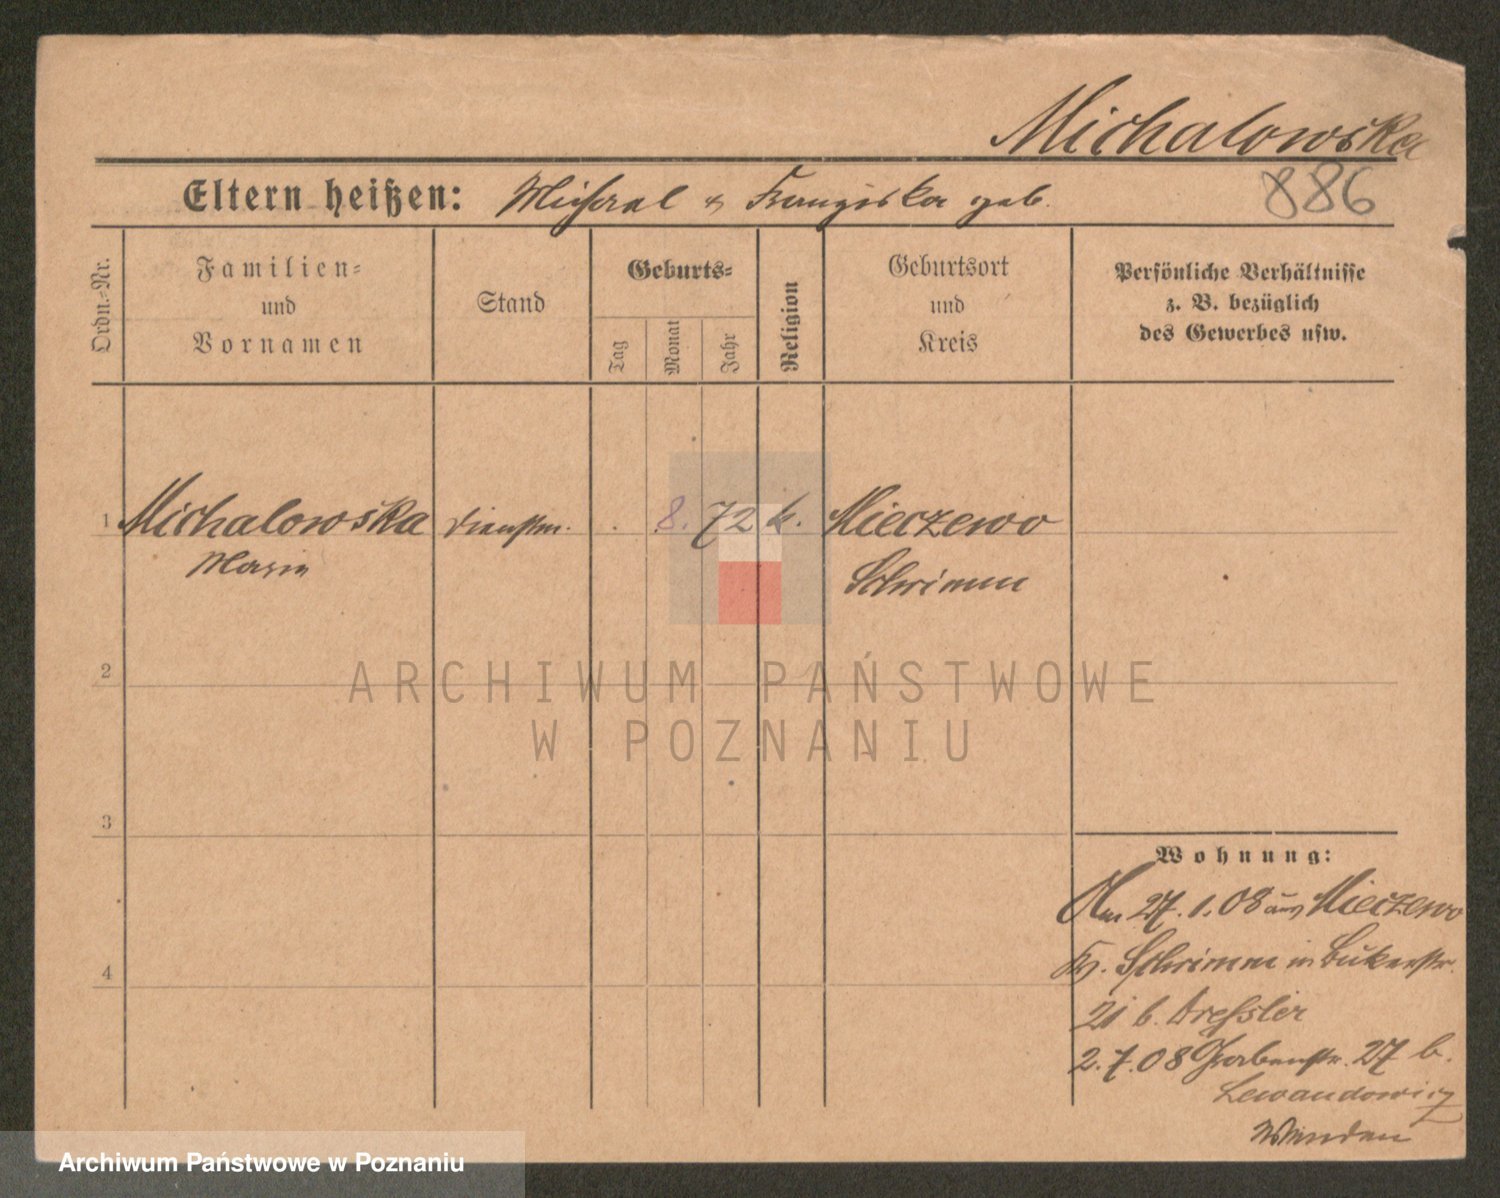 Michalowska
Eltern heißen: Michael & Franziska geb.
886
Ordn.-Nr.
Familien-
und
Vornamen
Stand
Geburts-
Tag
Monat
Jahr
Religion
Geburtsort
und
Kreis
Persönliche Verhältnisse
z. B. bezüglich
des Gewerbes usw.
1 Michalowska Dienstm. 8. 72 k. Mieczewo
Maria Schrimm
ARCHIWUM PAŃSTWOWE
W POZNANIU
2
3
4
Wohnung:
Am 27.1.08 aus Mieczewo
Kr. Schrimm in Bukerstr.
21 b. Dressler
2.7.08 Grabenstr. 27 b.
Lewandowicz
Archiwum Państwowe w Poznaniu